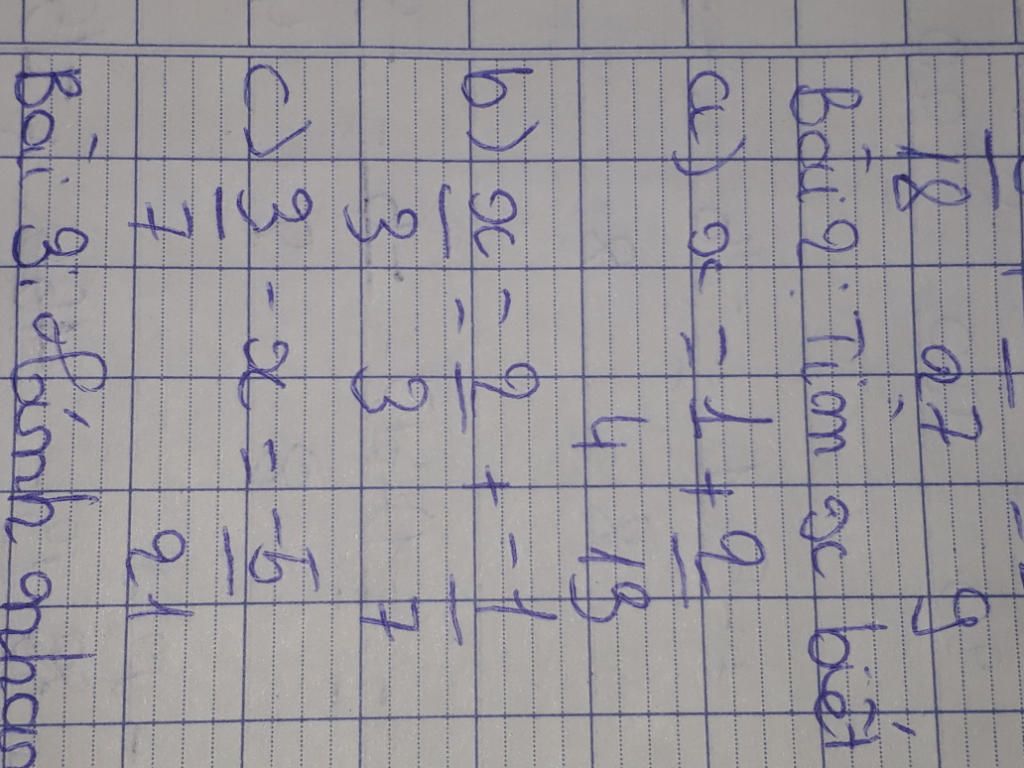 18 27 9
Bài 2: Tìm x biết
a) x = 1/4 + 2/13
b) x/3 = 2/3 + -1/7
c) 3/7 - x = -5/21
Bài 3: Tính nhan